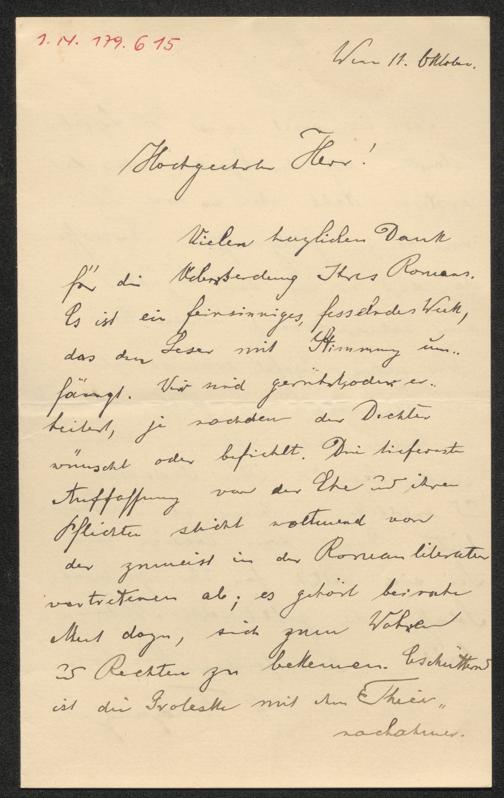 I.N. 179.615
Wien 11. Oktober.
Hochgeehrter Herr!
Vielen herzlichen Dank
für die Uebersendung Ihres Romans.
Es ist ein feinsinniges, fesselndes Werk,
das den Leser mit Stimmung um-
fängt. Wir sind gerührt oder er-
heitert, je nachdem der Dichter
wünscht oder befiehlt. Die tiefernste
Auffassung von der Ehe und ihren
Pflichten sticht wohltuend von
der zumeist in der Romanliteratur
vertretenen ab; es gehört beinahe
Mut dazu, sich zum Wahren
und Rechten zu bekennen. Erschütternd
ist die Groteske mit dem Thier-
nachahmer.